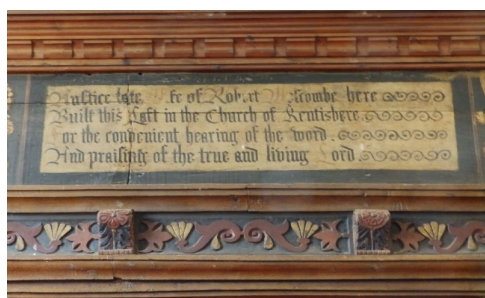 Anstice late of Robert here
Built this Loft in the Church of Kentisbere
For the convenient hearing of the word
And praising of the true and living Lord